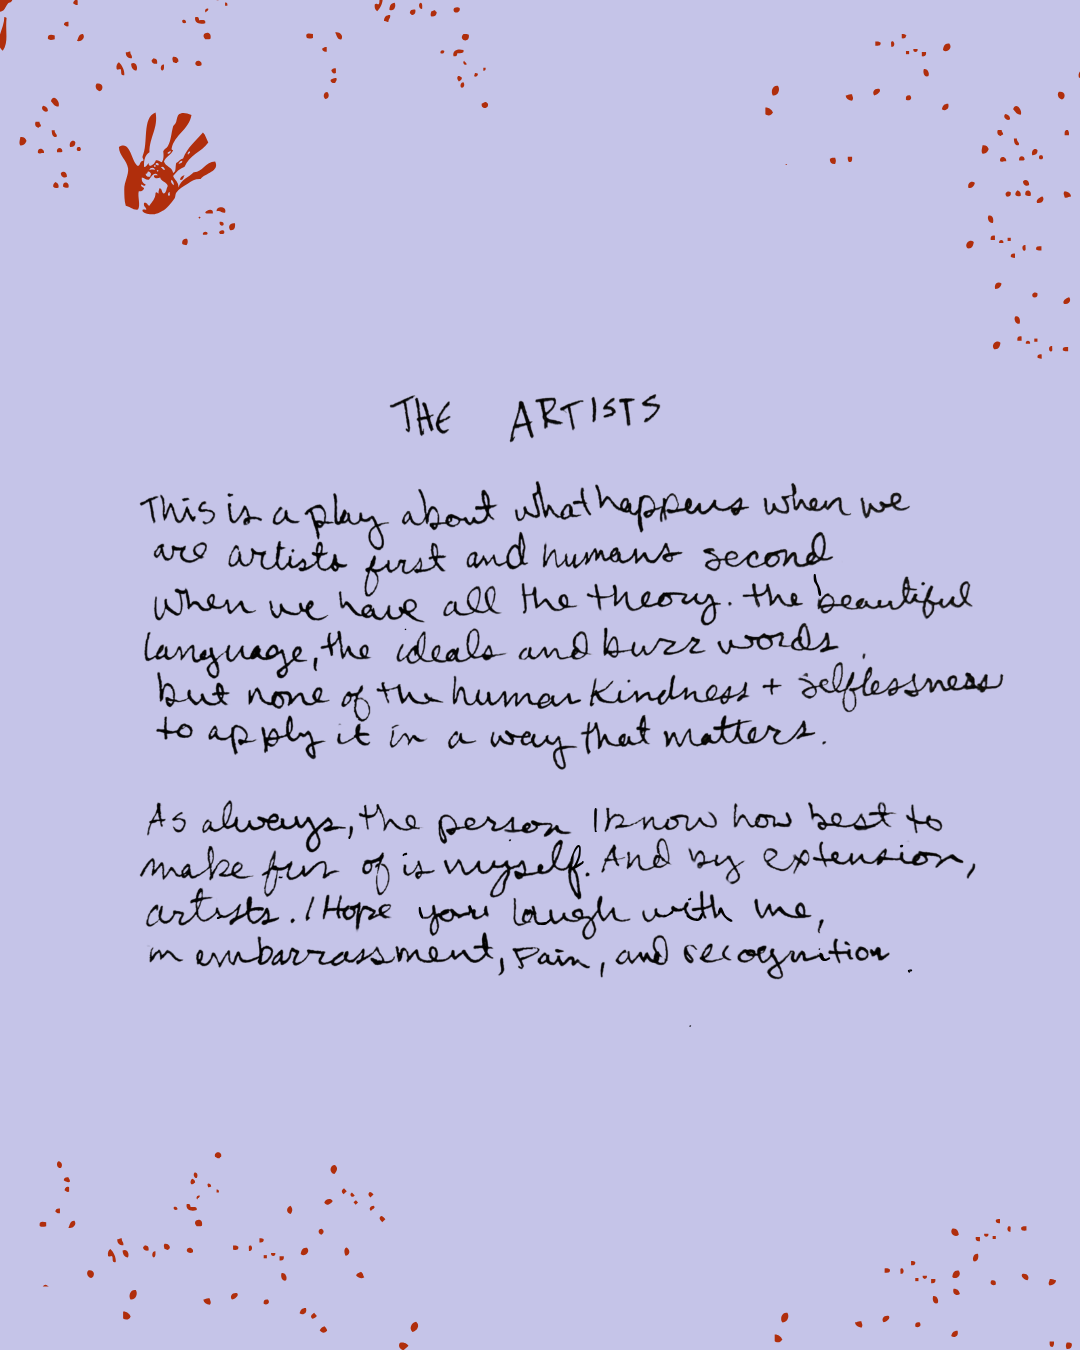 THE ARTISTS
This is a play about what happens when we
are artists first and humans second
when we have all the theory. the beautiful
language, the ideals and buzz words
but none of the human kindness + selflessness
to apply it in a way that matters.
As always, the person I know how best to
make fun of is myself. And by extension,
artists. I Hope you laugh with me,
in embarrassment, pain, and recognition.